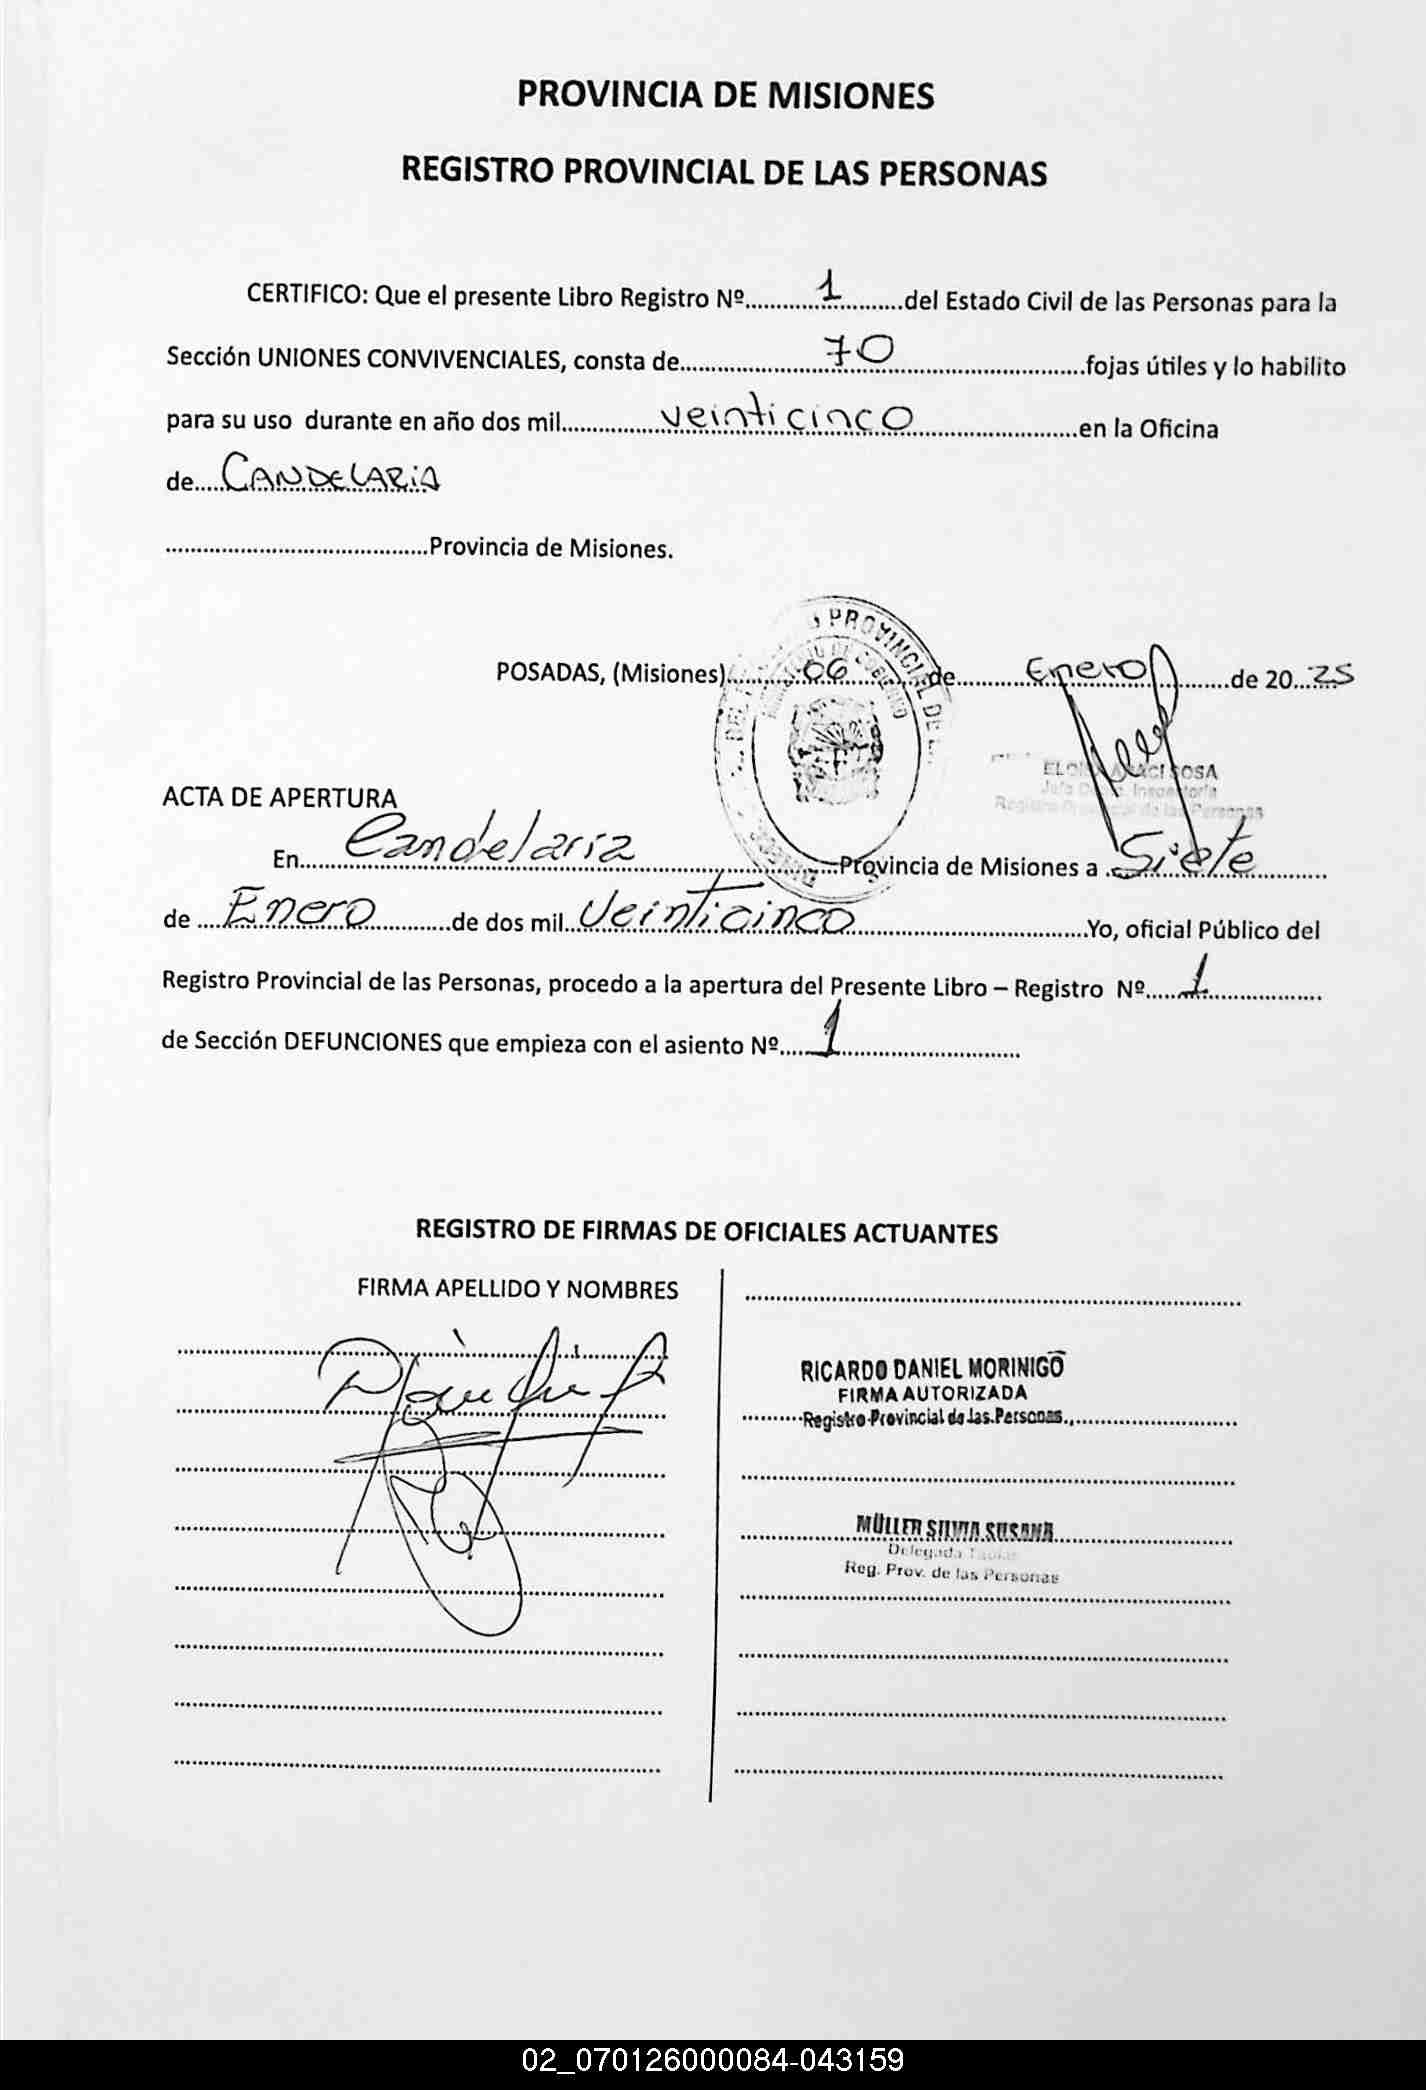 PROVINCIA DE MISIONES
REGISTRO PROVINCIAL DE LAS PERSONAS
CERTIFICO: Que el presente Libro Registro Nº..........1..........del Estado Civil de las Personas para la
Sección UNIONES CONVIVENCIALES, consta de..........70..........fojas útiles y lo habilito
para su uso durante en año dos mil..........veinticinco..........en la Oficina
de.....CANDELARIA
..........Provincia de Misiones.
POSADAS, (Misiones)..........06..........de..........Enero..........de 20...25
SOSA
Registro Provincial de las Personas
ACTA DE APERTURA
En..........Candelaria..........Provincia de Misiones a .Siete..........
de ....Enero..........de dos mil..Veinticinco..........Yo, oficial Público del
Registro Provincial de las Personas, procedo a la apertura del Presente Libro – Registro Nº.....1..........
de Sección DEFUNCIONES que empieza con el asiento Nº.....1..........
REGISTRO DE FIRMAS DE OFICIALES ACTUANTES
FIRMA APELLIDO Y NOMBRES
RICARDO DANIEL MORINIGO
FIRMA AUTORIZADA
Registro Provincial de las Personas
MÜLLER SILVIA SUSANA
Delegada
Reg. Prov. de las Personas
02_070126000084-043159